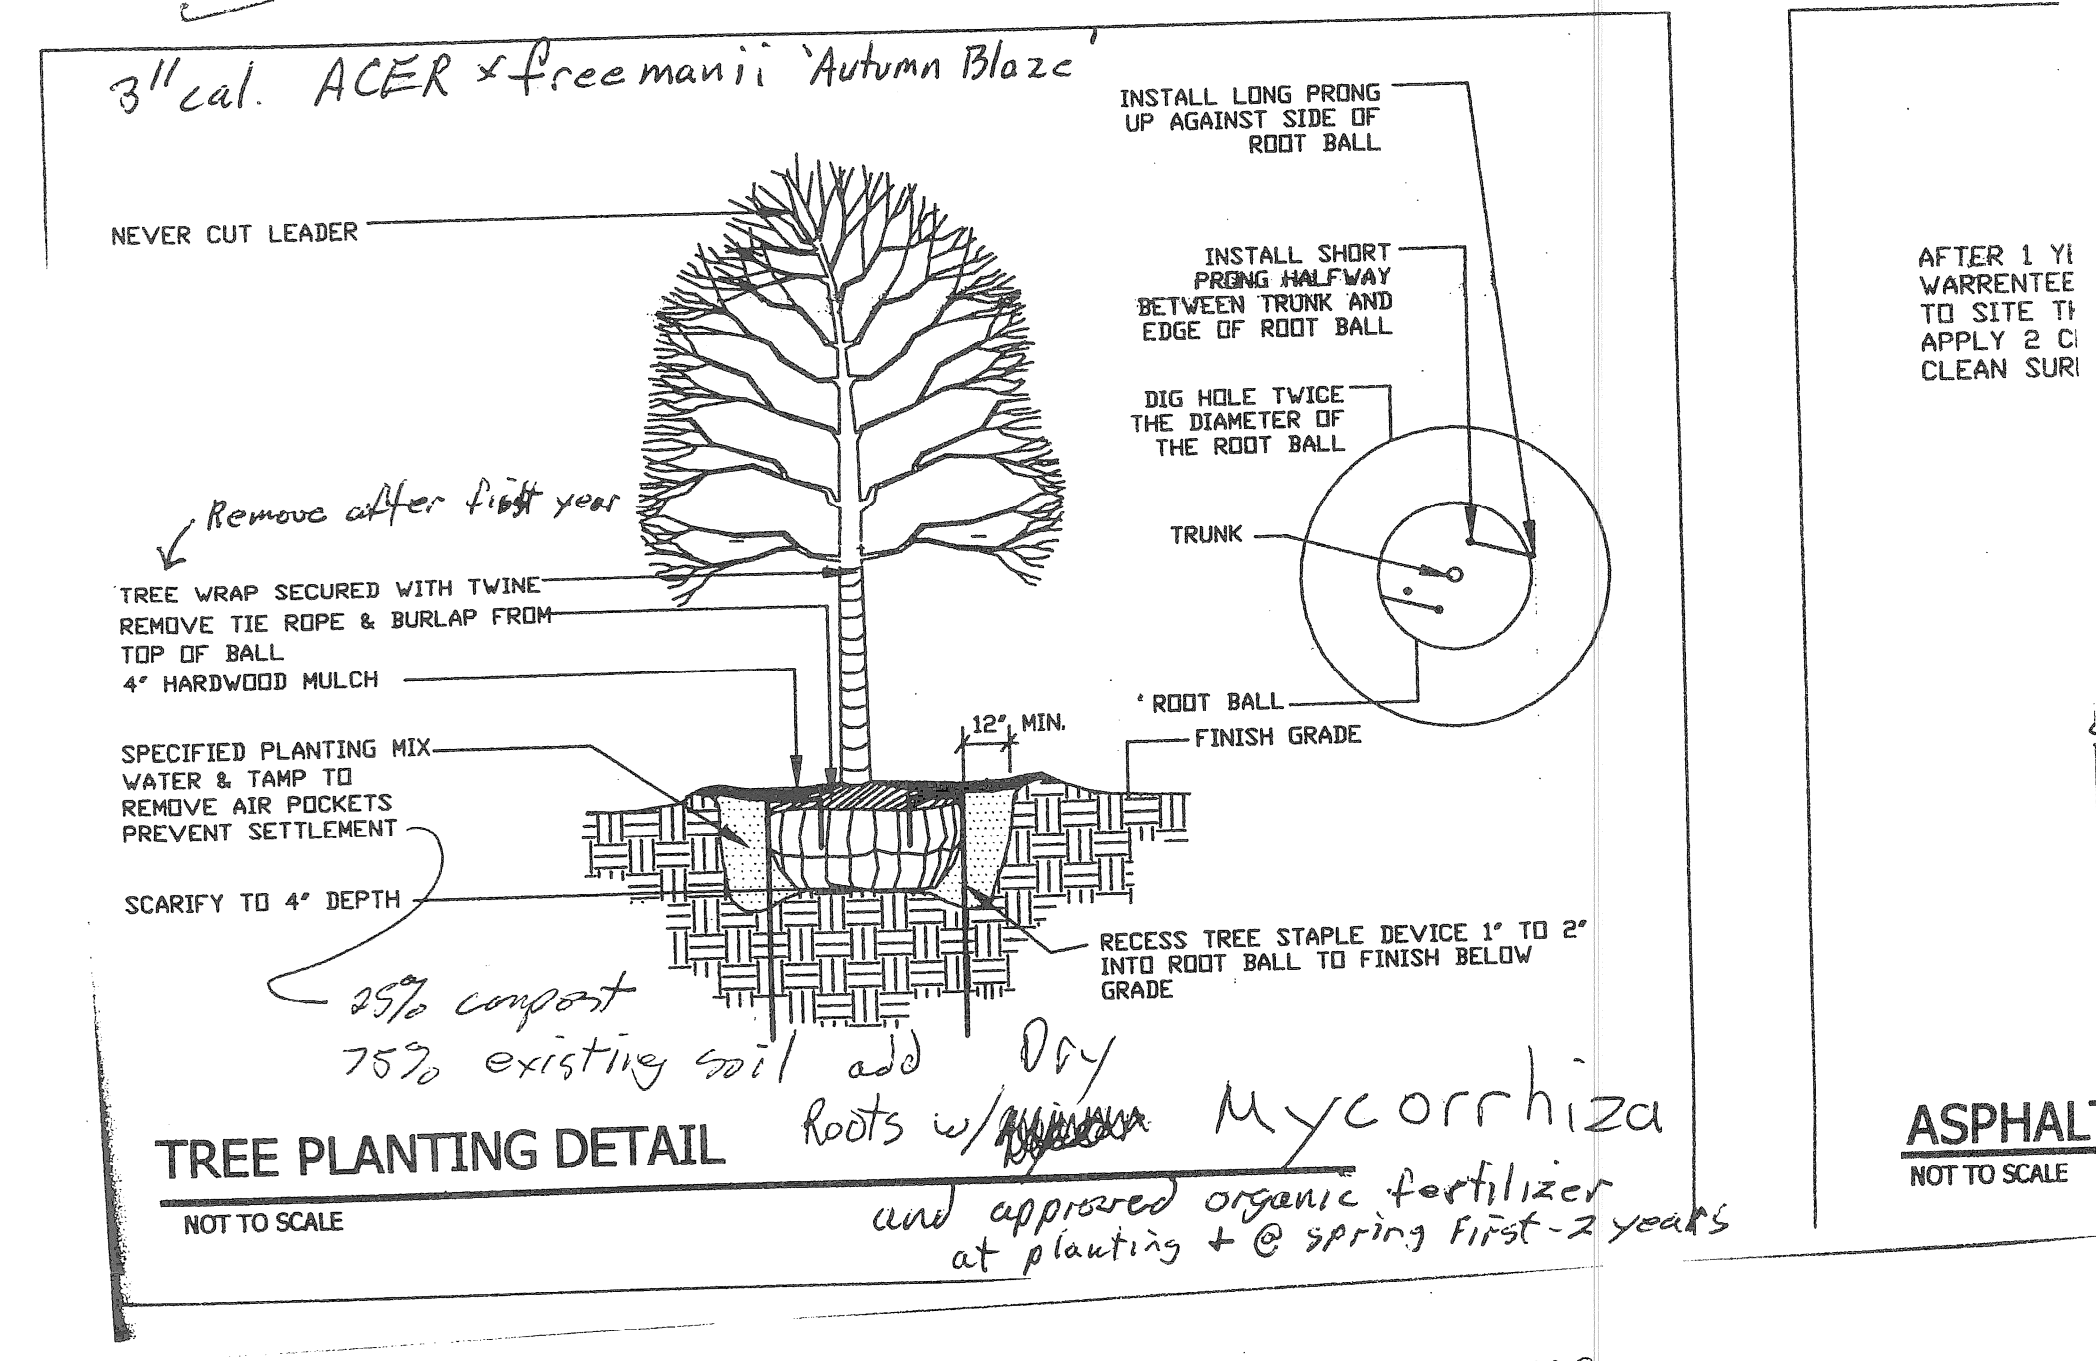 3" cal. ACER x freemanii 'Autumn Blaze'
INSTALL LONG PRONG
UP AGAINST SIDE OF
ROOT BALL
NEVER CUT LEADER
INSTALL SHORT
PRONG HALFWAY
BETWEEN TRUNK AND
EDGE OF ROOT BALL
DIG HOLE TWICE
THE DIAMETER OF
THE ROOT BALL
Remove after first year
TRUNK
TREE WRAP SECURED WITH TWINE
REMOVE TIE ROPE & BURLAP FROM
TOP OF BALL
4" HARDWOOD MULCH
ROOT BALL
12" MIN.
FINISH GRADE
SPECIFIED PLANTING MIX
WATER & TAMP TO
REMOVE AIR POCKETS
PREVENT SETTLEMENT
SCARIFY TO 4" DEPTH
RECESS TREE STAPLE DEVICE 1" TO 2"
INTO ROOT BALL TO FINISH BELOW
GRADE
25% compost
75% existing soil add Dry
Roots w/ Mycorrhiza
and approved organic fertilizer
at planting + @ spring First-2 years
TREE PLANTING DETAIL
NOT TO SCALE
AFTER 1
WARRENTEE
TO SITE
APPLY 2
CLEAN
ASPHAL
NOT TO SCALE